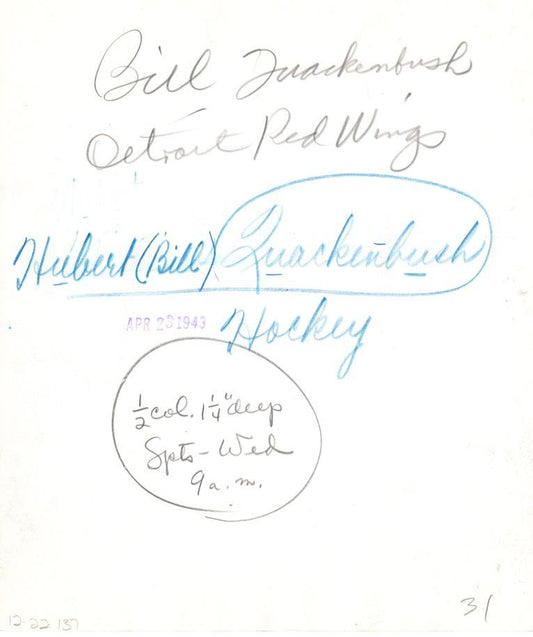 Bill Quackenbush
Detroit Red Wings
Hubert (Bill) Quackenbush
APR 23 1943
Hockey
½ col. 1¼" deep
Spts - Wed
9 a.m.
31
12-22 137